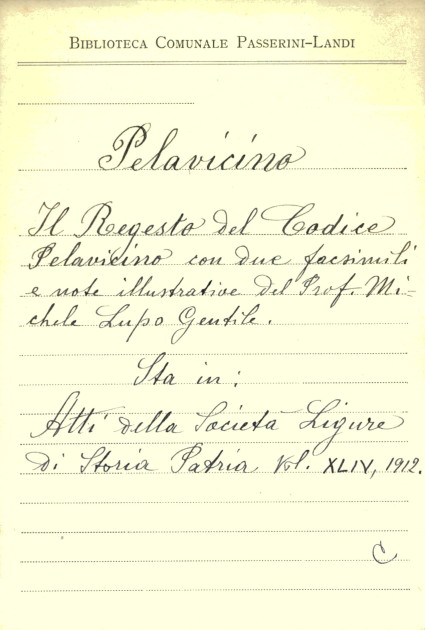 BIBLIOTECA COMUNALE PASSERINI-LANDI
Pelavicino
Il Regesto del Codice
Pelavicino con due facsimili
e note illustrative del Prof. Mi-
chele Lupo Gentile.
Sta in:
Atti della Società Ligure
di Storia Patria Vol. XLIV, 1912.
C